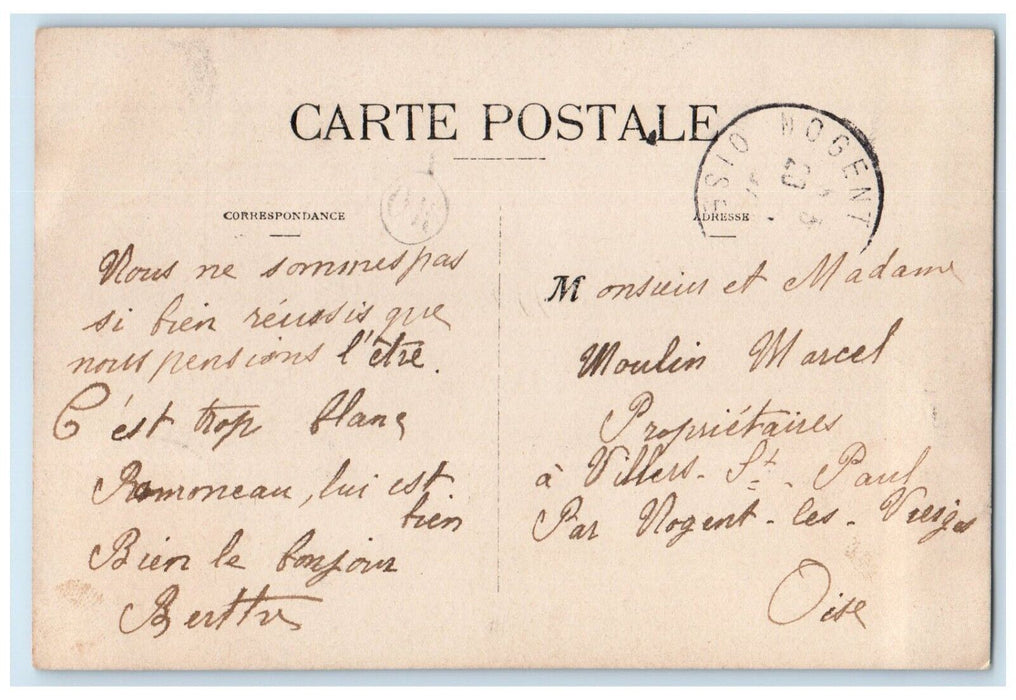 CARTE POSTALE
CORRESPONDANCE
Nous ne sommes pas
si bien réussis que
nous pensions l'être.
C'est trop blanc
Ramoneau, lui est
bien
Bien le bonjour
Berthe
NOGENT
OISE
ADRESSE
Monsieur et Madame
Moulin Marcel
Propriétaires
à Villers-St-Paul
Par Nogent-les-Vierges
Oise